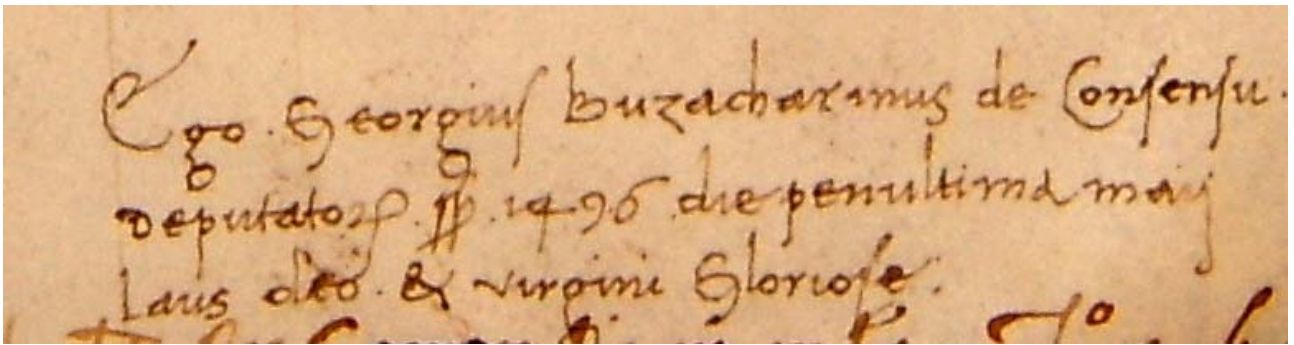 Ego. Georgius Buzacharinus de Consensu.
deputatoꝝ. . 1496 die penultima maij
Laus deo. & virgini Gloriose.